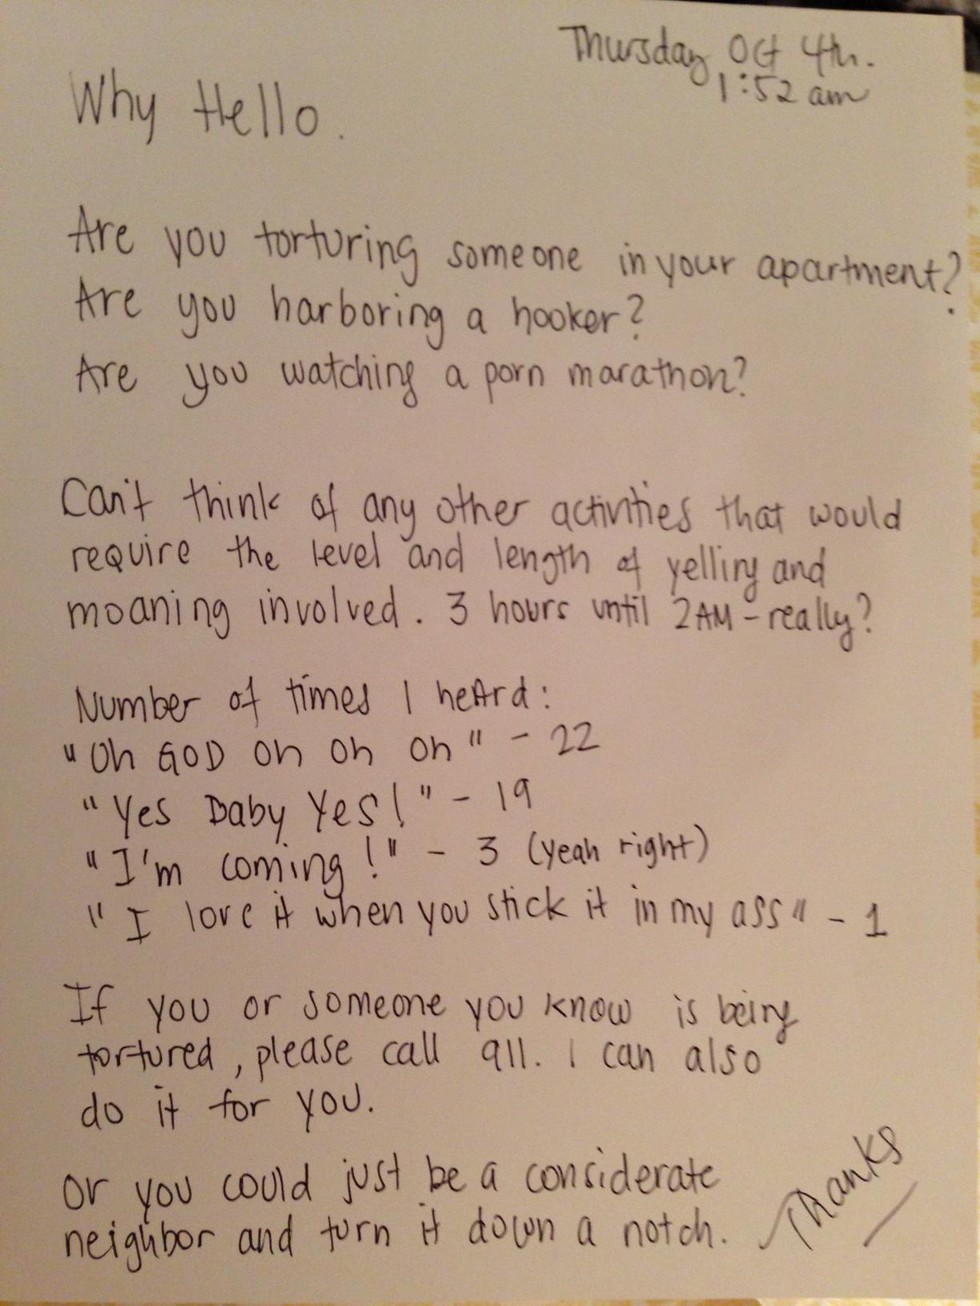 Thursday Oct 4th.
1:52 am
Why Hello.
Are you torturing someone in your apartment?
Are you harboring a hooker?
Are you watching a porn marathon?
Can't think of any other activities that would
require the level and length of yelling and
moaning involved. 3 hours until 2AM - really?
Number of times I heard:
"Oh GOD oh oh oh" - 22
"Yes Baby Yes!" - 19
"I'm coming!" - 3 (yeah right)
"I love it when you stick it in my ass" - 1
If you or someone you know is being
tortured, please call 911. I can also
do it for you.
Or you could just be a considerate
neighbor and turn it down a notch.
Thanks